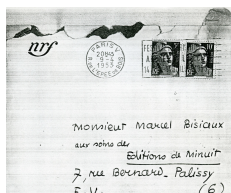 nrf
PARIS V
20H45
9-4
1953
R. DE L'EPEE DE BOIS
Monsieur Marcel Bisiaux
aux soins des
Editions de Minuit
7, rue Bernard-Palissy
E.V. (6)